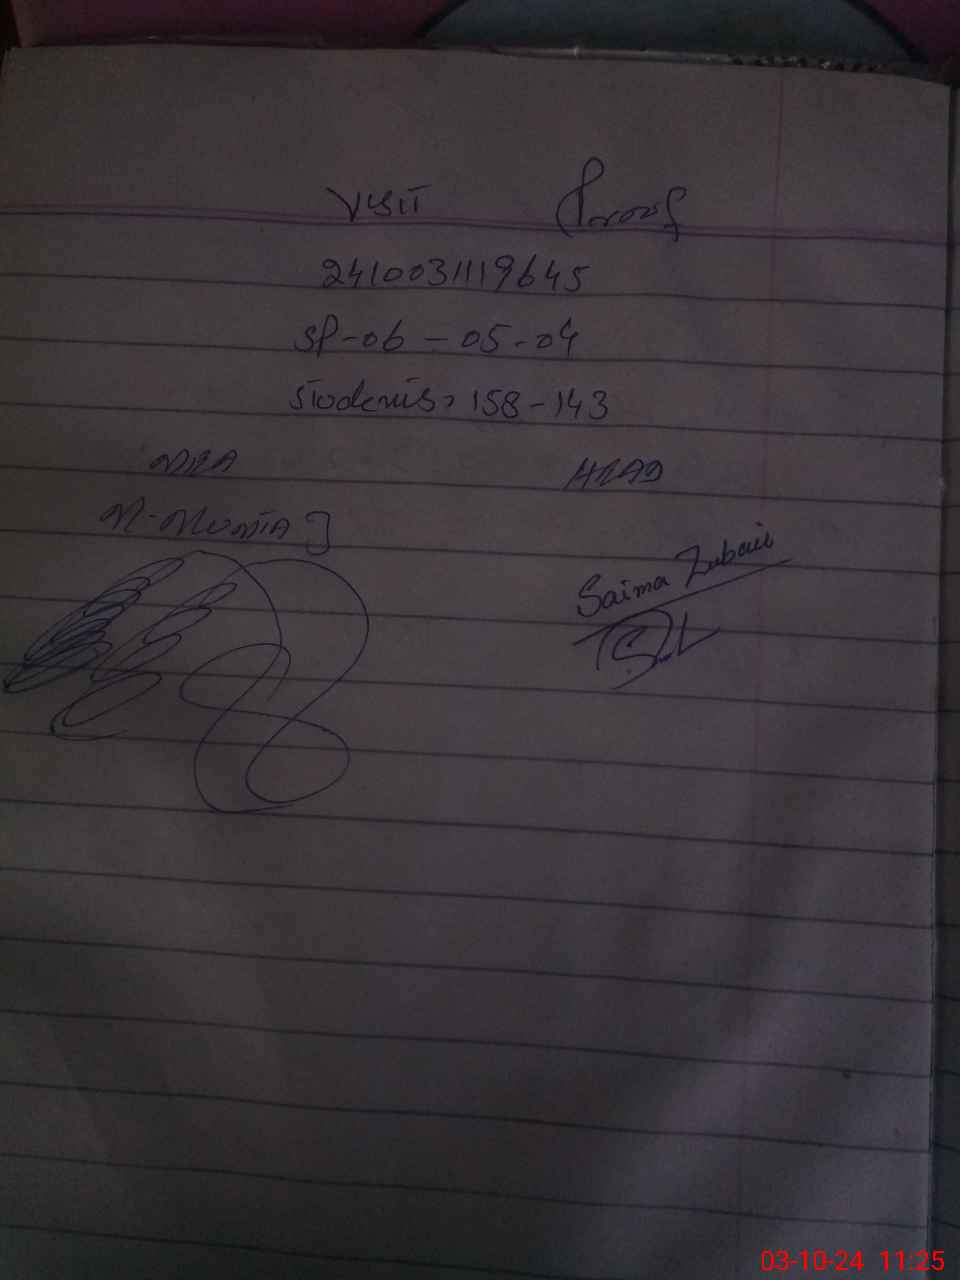 Visit Proof
2410031119645
SP-06-05-04
Students, 158-143
MEA HEAD
M-Mumtaz
Saima Zubair
03-10-24 11:25